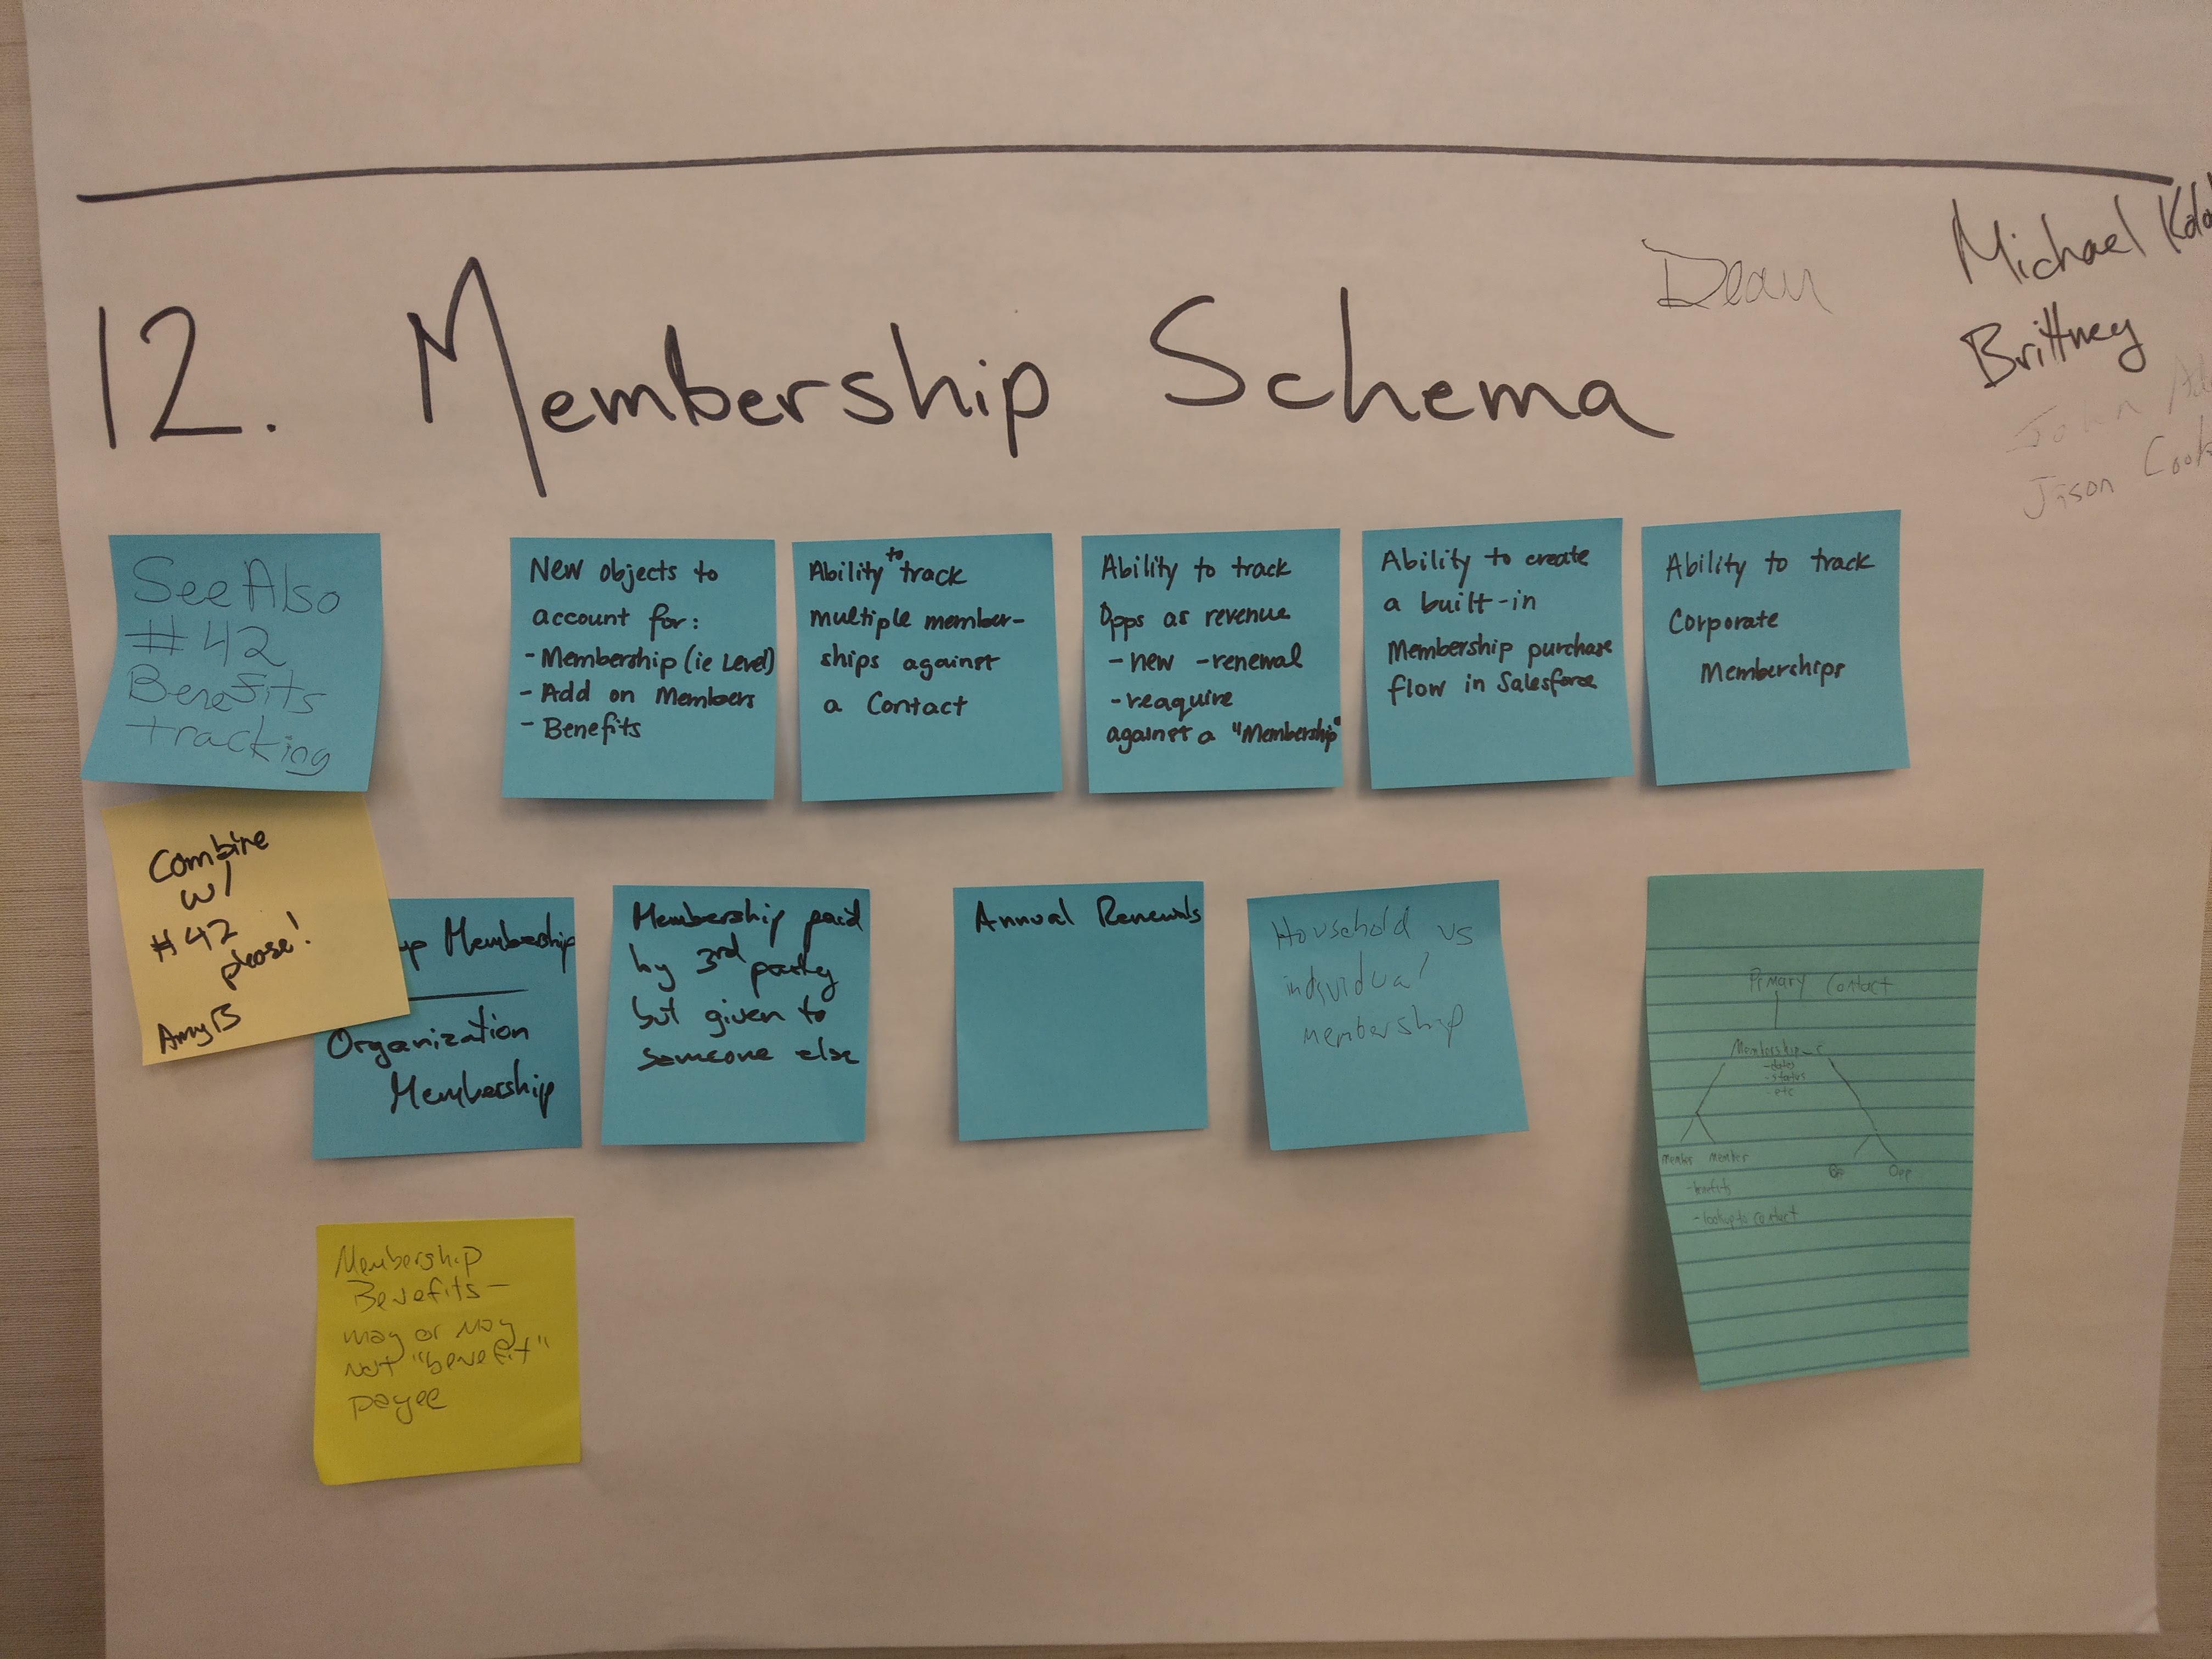 12. Membership Schema
Dean
Michael
Brittney
John
Jason
See Also
#42
Benefits
tracking
New objects to
account for:
- Membership (ie Level)
- Add on Members
- Benefits
Ability to track
multiple member-
ships against
a Contact
Ability to track
Opps as revenue
- new - renewal
- reaquire
against a "Membership"
Ability to create
a built-in
Membership purchase
flow in Salesforce
Ability to track
Corporate
Memberships
Combine
w/
#42
please!
AmyB
Membership
Organization
Membership
Membership paid
by 3rd party
but given to
someone else
Annual Renewals
Household vs
individual
membership
Primary Contact
Membership_c
- dates
- status
- etc
Member Member
Opp Opp
- benefits
- lookup to contact
Membership
Benefits -
may or may
not "benefit"
payee